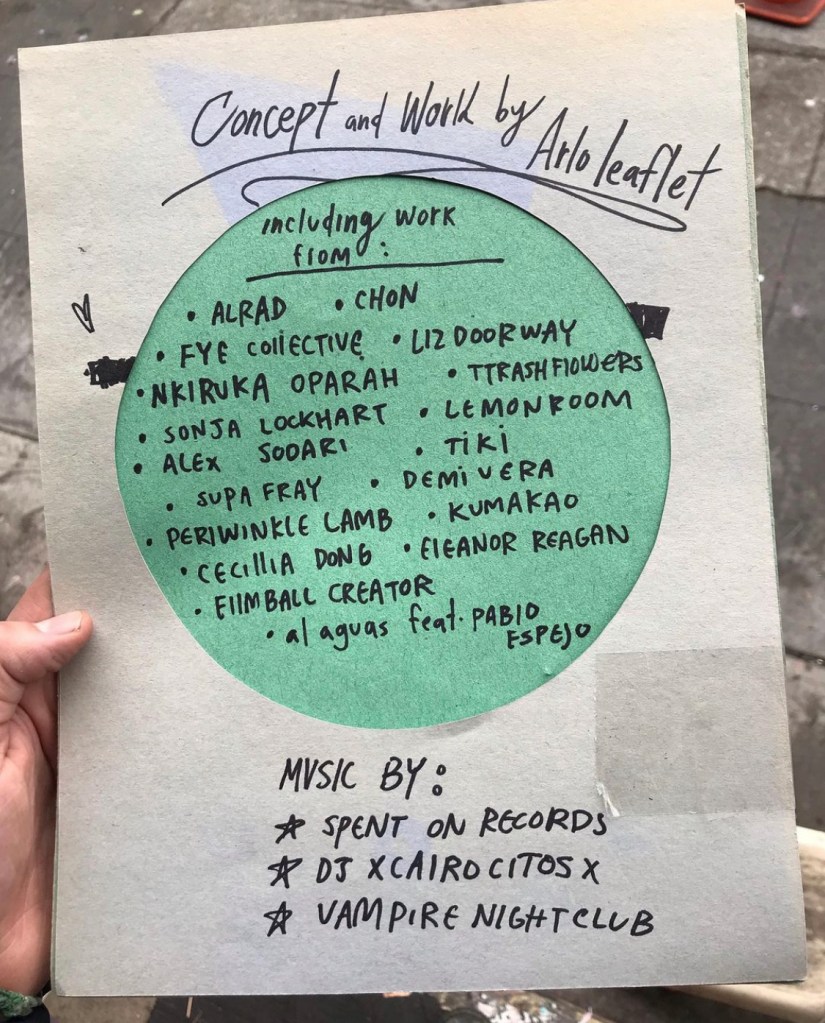 Concept and Work by Arlo leaflet
including work
from:
• ALRAD • CHON
• FYE COllECTIVE • LIZ DOORWAY
• NKIRUKA OPARAH • TTRASHFlOWERS
• SONJA LOCKHART • LEMONROOM
• ALEX SODARI • TiKi
• SUPA FRAY • DEMI VERA
• PERIWINKLE LAMB • KUMAKAO
• CECIllIA DONG • ElEANOR REAGAN
• FIlMBALL CREATOR
• al aguas feat. PABlO
ESPEJO
MUSIC BY:
☆ SPENT ON RECORDS
☆ DJ XCAIROCITOSX
☆ VAMPIRE NIGHTCLUB